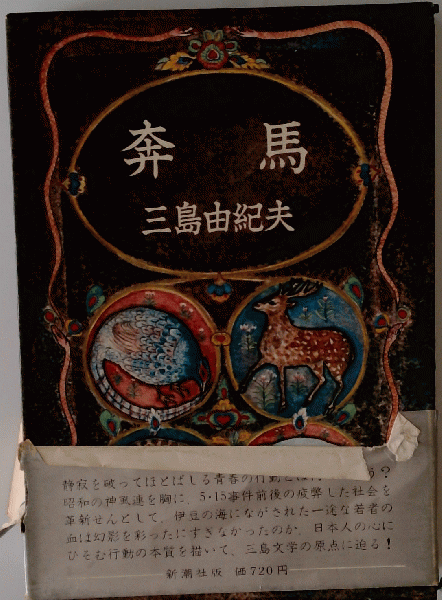 奔馬
三島由紀夫
静寂を破ってほとばしる青春の行動とは何
?
昭和の神風連を胸に、5・15事件前後の疲弊した社会を
革新せんとして、伊豆の海にながされた一途な若者の
血は幻影を彩ったにすぎなかったのか。日本人の心に
ひそむ行動の本質を描いて、三島文学の原点に迫る!
新潮社版 価720円